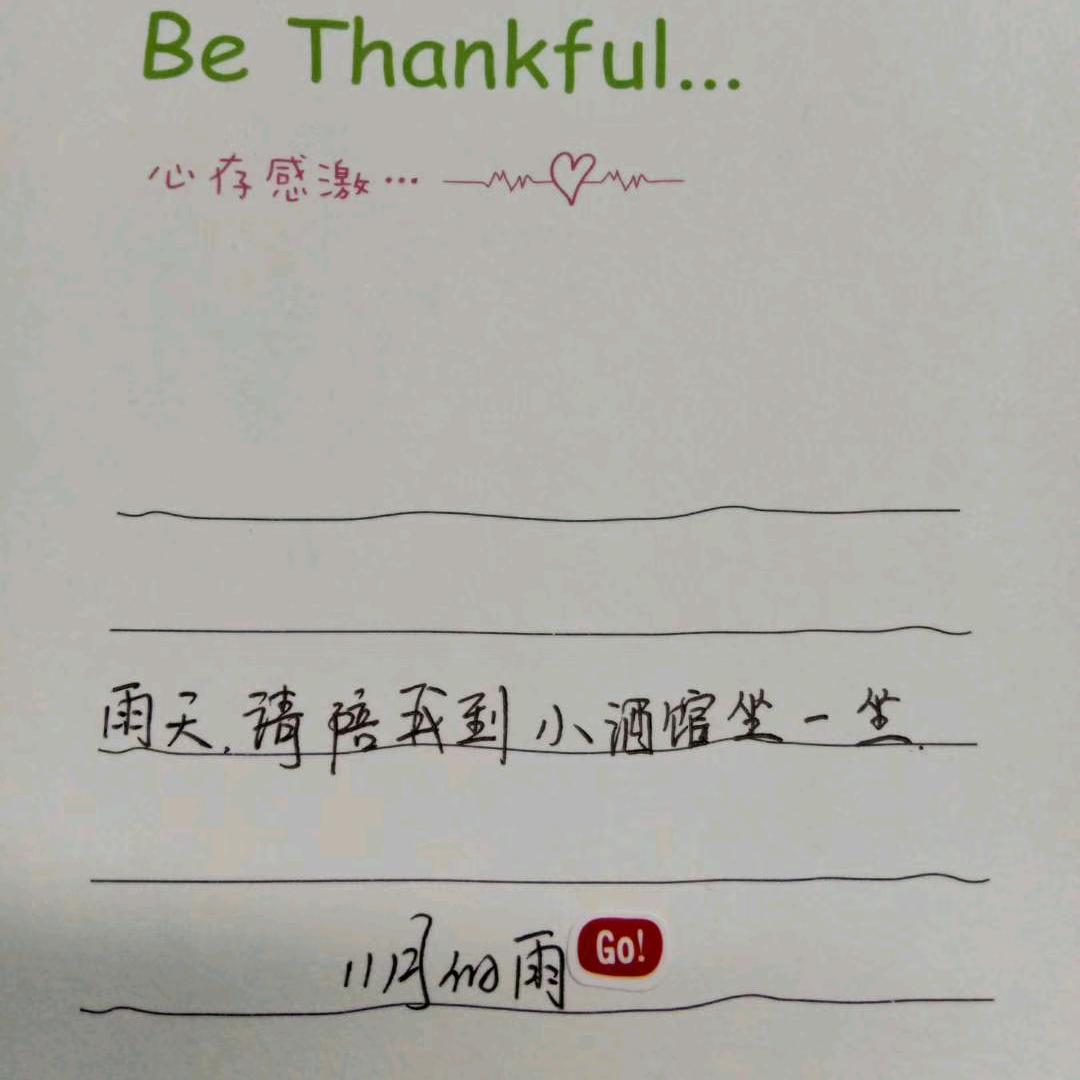 Be Thankful...
心存感激...
雨天,请陪我到小酒馆坐一坐.
11月的雨 Go!